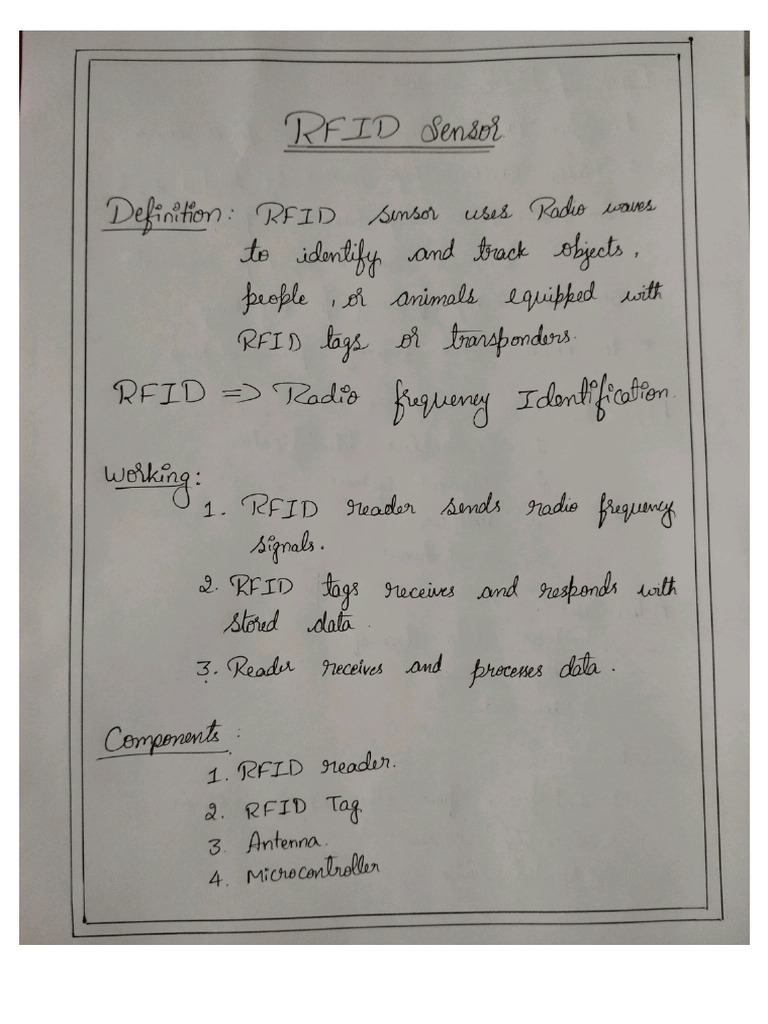 RFID Sensor
Definition: RFID sensor uses Radio waves
to identify and track objects,
people, or animals equipped with
RFID tags or transponders.
RFID => Radio frequency Identification.
Working:
1. RFID reader sends radio frequency
signals.
2. RFID tags receives and responds with
stored data.
3. Reader receives and processes data.
Components:
1. RFID reader.
2. RFID Tag
3. Antenna.
4. Microcontroller